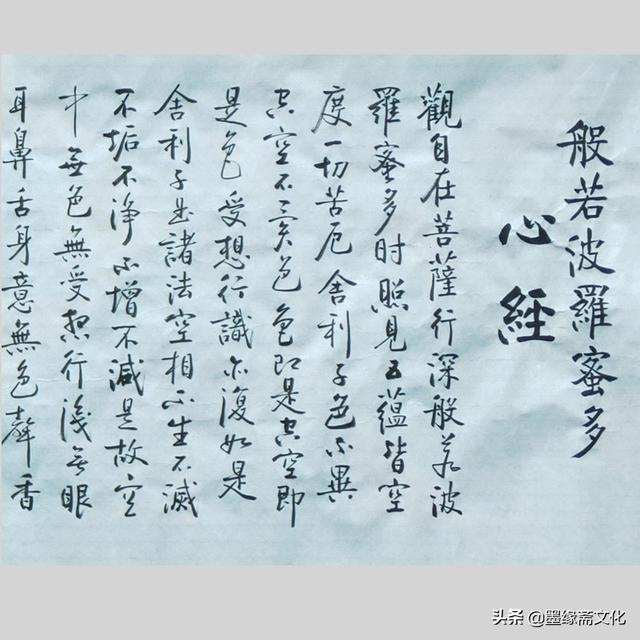 般若波羅蜜多
心經
觀自在菩薩行深般若波
羅蜜多时照見五蘊皆空
度一切苦厄舍利子色不異
空空不異色色即是空空即
是色受想行識亦復如是
舍利子是諸法空相不生不滅
不垢不净不增不減是故空
中無色無受想行識無眼
耳鼻舌身意無色聲香
头条 @墨缘斋文化